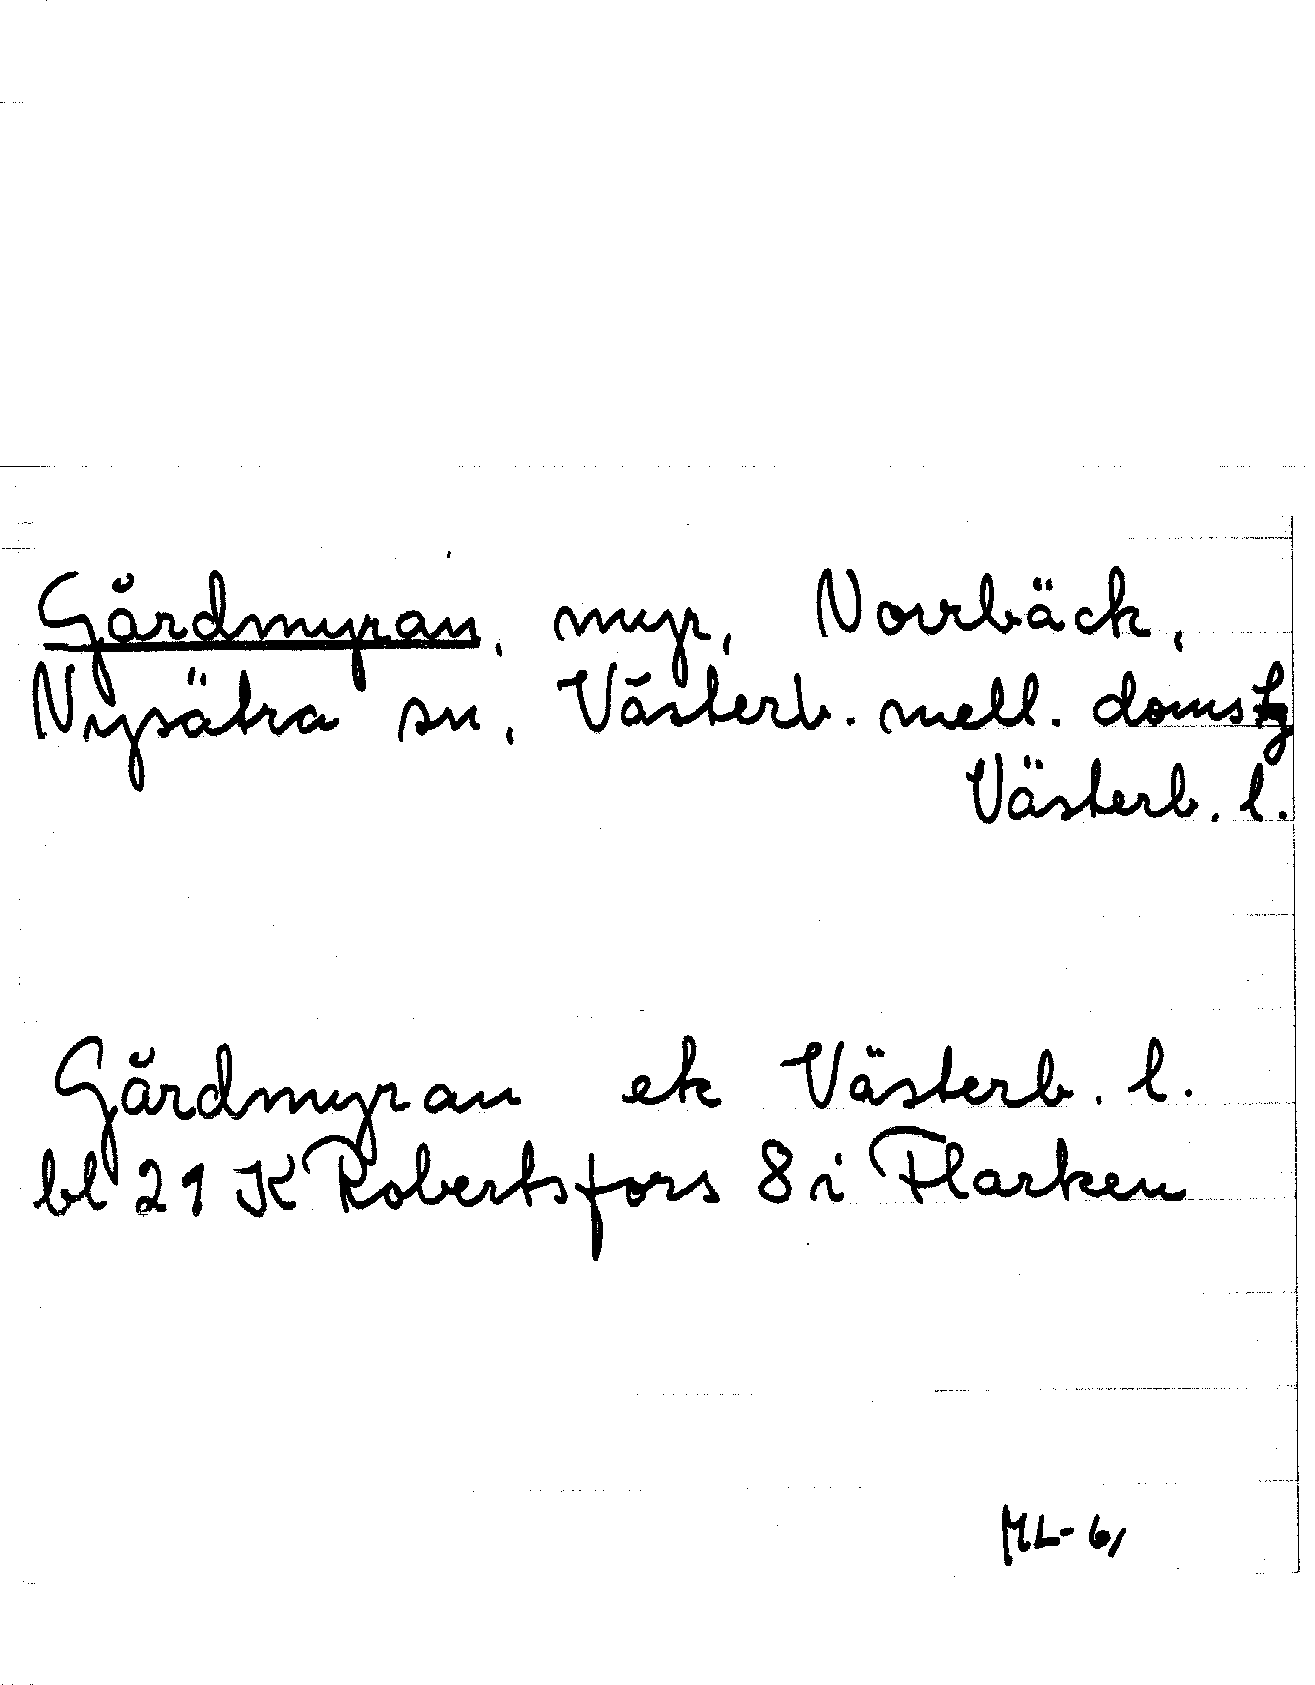 Gårdmyran, myr, Norrbäck,
Nysätra sn, Västerb. mell. doms tg
Västerb. l.
Gårdmyran ek Västerb. l.
bl 21 K Robertsfors 8 i Flarken
ML-61